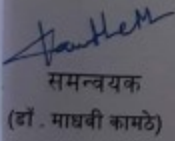 समन्वयक
(डॉ. माधवी कामठे)